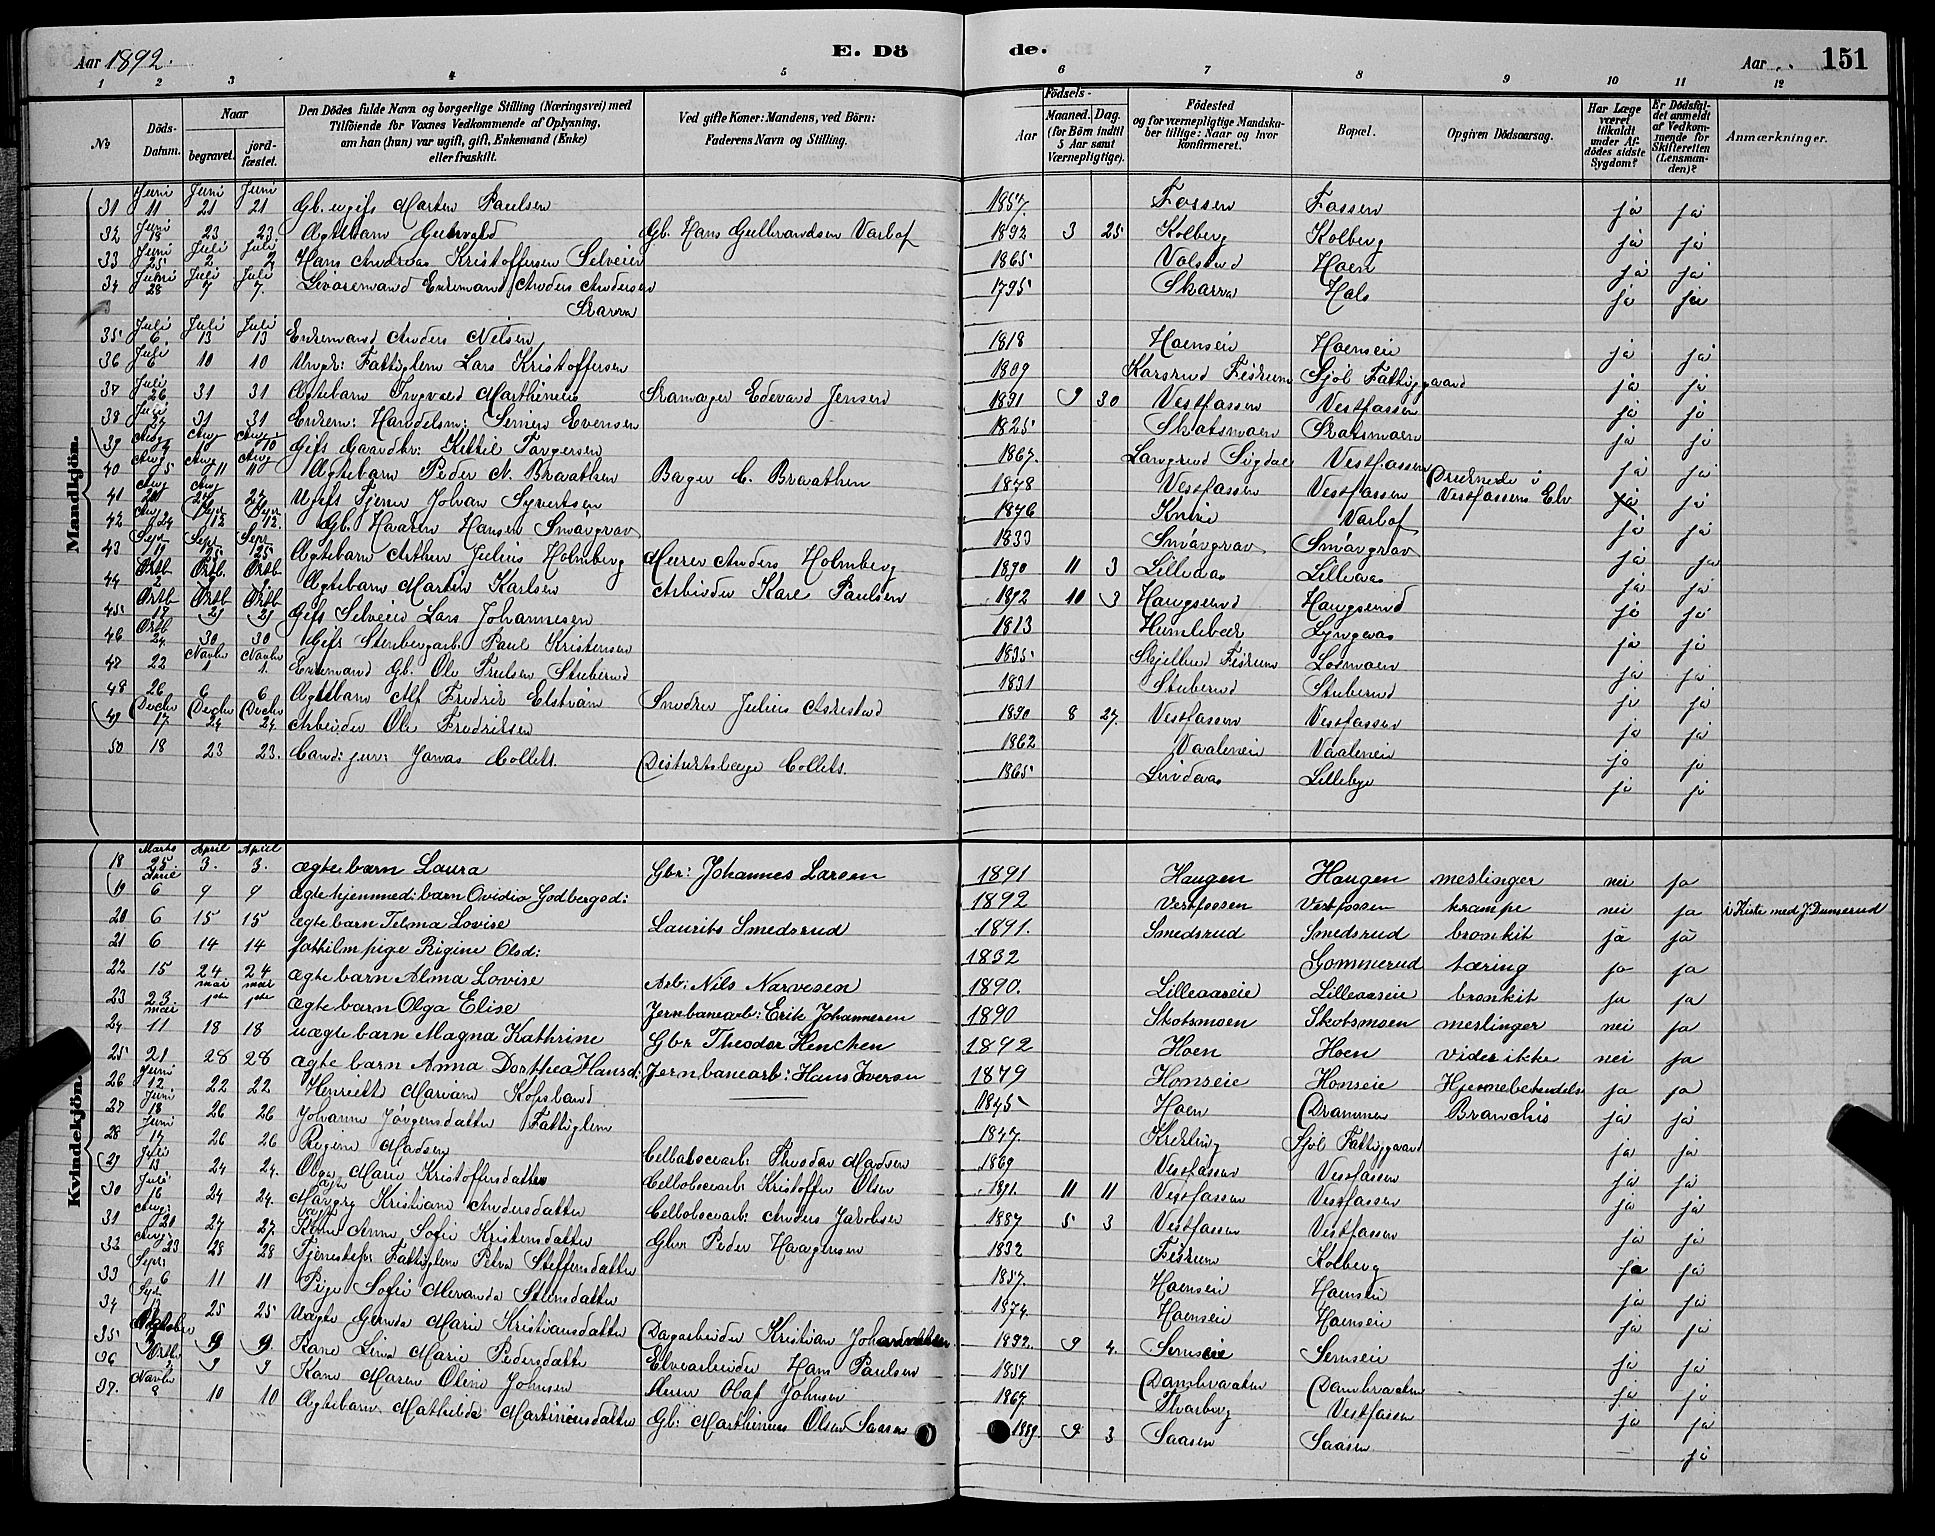 Aar 1892. E. Dö de. Aar 151
1 2 3 4 5 6 7 8 9 10 11 12
№ Döds-Datum. Naar begravet. jordfæstet. Den Dödes fulde Navn og borgerlige Stilling (Næringsvei) med Tilföiende for Voxnes Vedkommende af Oplysning, om han (hun) var ugift, gift, Enkemand (Enke) eller fraskilt. Ved gifte Koner: Mandens, ved Börn: Faderens Navn og Stilling. Födsels- Aar Maaned. Dag. (for Börn indtil 5 Aar samt Værnepligtige). Födested og for værnepligtige Mandskaber tillige: Naar og hvor konfirmeret. Bopæl. Opgiven Dödsaarsag. Har Læge været tilkaldt under Afdödes sidste Sygdom? Er Dödsfaldet anmeldt af Vedkommende for Skifteretten (Lensmanden)? Anmærkninger.
Mandkjön.
31 Juni 11 Juni 21 Juni 21 Gb. ugift Marten Paulsen 1857. Fossen Fossen ja ja
32 Juni 18 23 23 Ægtebarn Gunvald Gb. Hans Gulbrandsen Varlof 1892 3 25 Kolberg Kolberg ja ja
33 Juni 25 Juli 2 Juli 2 Hans Andreas Kristoffersen Selveier 1865 Volstad Hoen ja ja
34 Juni 28 Juli 7 Juli 7. Livöremand Enkemand Anders Andersen Skarra 1795 Skarra Hals ja ja
35 Juli 6 Juli 13 Juli 13 Enkemand Anders Nilsen 1818 Hoenseie Hoenseie ja ja
36 Juli 6 10 10 Ungk: Fattiglem Lars Kristoffersen 1809 Karsrud Fiskum Sjöl Fattiggaard ja ja
37 Juli 26 31 31 Ægtebarn Ingvald Marthinius Skomager Edevard Jensen 1891 9 30 Vestfossen Vestfossen ja ja
38 Juli 27 31 31 Enkem: Handelsm: Simen Evensen 1825 Skotsmoen Skotsmoen ja ja
39 Aug 4 Aug 10 Aug 10 Gift Gaardbr: Kittil Torgersen 1867. Langrud Sigdal Vestfossen ja ja
40 Aug 5 Aug 11 Aug 11 Ægtebarn Peder N. Braathen Bager C. Braathen 1878 Vestfossen Vestfossen Druknede i Vestfossens Elv ja ja
41 Aug 20 Aug 24 24 Ugift Tjener Johan Syvertsen 1876 Knive Varlof ja ja
42 Aug 24 Sept 12 Sept 12. Gb. Haaken Hansen Smörgrav 1833 Smörgrav Smörgrav ja ja
43 Sept 19 Sept 25 Sept 25 Ægtebarn Arthur Julius Holmberg Murer Anders Holmberg 1890 11 3 Lilleaas Lilleaas ja ja
44 Oktb 2 Oktb. Oktb Ægtebarn Marten Karlsen Arbeider Karl Paulsen 1892 10 3 Haugsrud Haugsrud ja ja
45 Oktb 17 Oktb 21 Oktb 21 Gift Selveier Lars Johannesen 1813 Humlebek Lyngaas ja ja
46 Oktb 24 30 30 Gift Stenbergarb. Paul Kristensen 1835 Skjelbred Fiskum Losmoen ja ja
47 22 Novbr 1 Novbr 1. Enkemand Gb. Ole Truelsen Stuberud 1831 Stuberud Stuberud ja ja
48 26 6 6 Ægtebarn Alf Fredrik Elström Snedker Julius Askestad 1890 8 27. Vestfossen Vestfossen ja ja
49 Decbr 17 Decbr 24 Decbr 24 Arbeider Ole Fredriksen 1862 Vaaleneie Vaaleneie ja ja
50 18 23 23. Cand: jur: Jonas Collett. Distriktslæge Collett. 1865 Lindaas Lillebye ja ja
Kvindekjön.
18 Marts 25 April 3. April 3. ægtebarn Laura Gbr: Johannes Larsen 1891 Haugen Haugen meslinger nei ja
19 April 6 9 9 ægte hjemmed: barn Ovidia Godbergsd: 1892 Vestfossen Vestfossen krampe nei ja i Kiste med J. Dunserud
20 6 15 15 ægte barn Telma Lovise Laurits Smedsrud 1891. Smedsrud Smedsrud bronkit ja ja
21 6 14 14 fattilmpige Rigine Olsd: 1832 Gommerud tæring ja ja
22 15 24. 24 ægte barn Alma Lovise Arb: Nils Narvesen 1890. Lilleaaseie Lilleaaseie bronkit ja ja
23 23. mai 1ste mai 1ste ægte barn Olga Elise Jernbanearb: Erik Johannesen 1890 Skotsmoen Skotsmoen meslinger nei ja
24 mai 11 18 18 uægte barn Magna Kathrine Gbr Theodor Henchen 1892 Hoen Hoen vides ikke nei ja
25 21 28 28 ægte barn Anna Dorthea Hansd: Jernbanearb: Hans Iversen 1879 Honseie Honseie Hjernebetændels ja ja
26 Juni 12. 22 22 Henriette Mariane Kopsland 1845 Hoen Drammen Bronchis ja ja
27 Juni 18 26 26 Johanne Jörgensdatter Fattiglem 1847. Krekling Sjöl Fattiggaard ja ja
28 Juni 17 26 26 Regine Madsen Cellulosearb: Theodor Madsen 1869 Vestfossen Vestfossen ja ja
29 Juli 13 24 24. Olga Marie Kristoffersdatter Cellulosearb: Kristoffer Olsen 1891. 11 11 Vestfossen Vestfossen ja ja
30 Juli 16 24 24. Margry Kristiane Andersdatter Cellulosearb: Anders Jacobsen 1887 5 3 Vestfossen Vestfossen ja ja
31 Aug: 20 27 27. Kone Anne Sofie Kristensdatter Gbr. Peder Haagensen 1832 Fiskum Kolberg ja ja
32 Aug: 23 28 28 Tjenestepr Fattiglem Petra Steffensdatter 1857. Hoenseie Hoenseie ja ja
33 Sept: 6 11 11 Pige Sofie Meranda Stensdatter 1874 Hoenseie Hoenseie ja ja
34 Sept 18 25 25 Uægte Gunda Marie Kristiansdatter Dagarbeider Kristian Johannesen 1892. 9 4. Semseie Semseie ja ja
35 Oktober 9 9. Kone Lina Marie Pedersdatter Elvearbeider Hans Paulsen 1851 Dambraaten Dambraaten ja ja
36 Oktb 9 9 Kone Maren Oline Johnsen Murer Olaf Johnsen 1867. Vestfossen ja ja
37. Novbr 2 10 10 Ægtebarn Mathilde Martiniusdatter Gb: Marthinius Olsen Saasen 1889. 9 3 Saasen Saasen ja